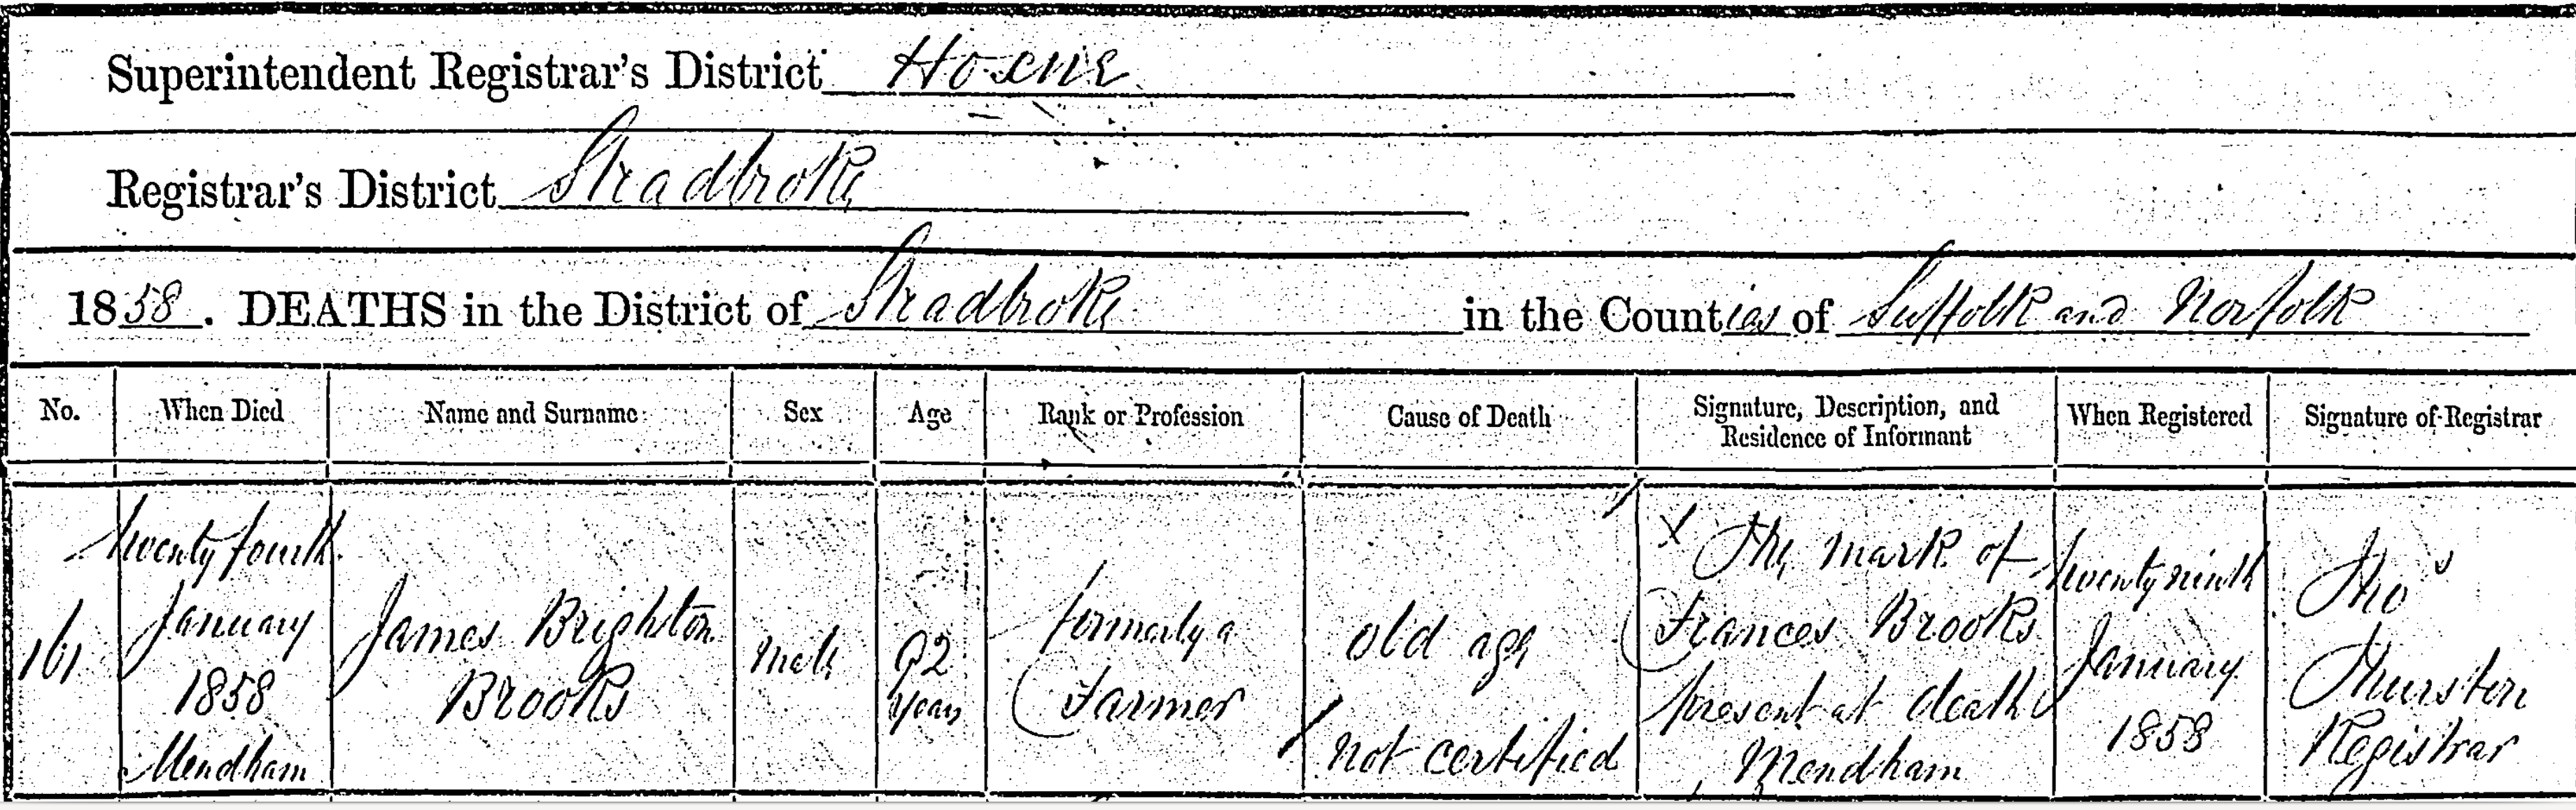 Superintendent Registrar's District Hoxne
Registrar's District Stradbroke
1858. DEATHS in the District of Stradbroke in the Counties of Suffolk and Norfolk
No. When Died Name and Surname Sex Age Rank or Profession Cause of Death Signature, Description, and Residence of Informant When Registered Signature of Registrar
161
twenty fourth
January
1858
Mendham
James Brighton
Brooks
Male
92
years
formerly a
Farmer
old age
not certified
X The mark of
Frances Brooks
present at death
Mendham
twenty ninth
January
1858
Thos
Thurston
Registrar